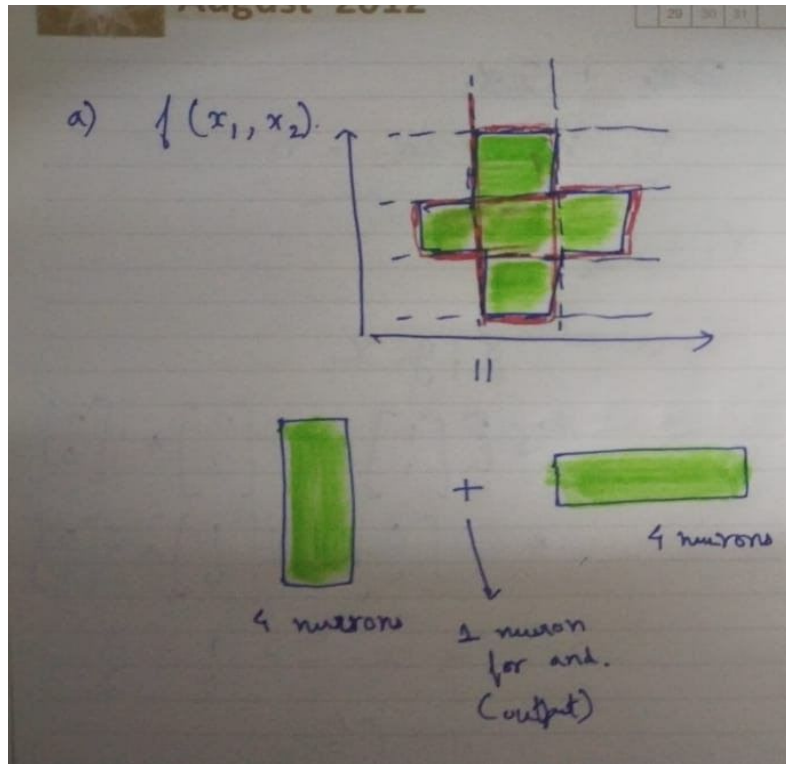 August 2012
29 30 31
a) f(x₁, x₂).
||
+
4 neurons
4 nurrons
1 neuron
for and.
(output)